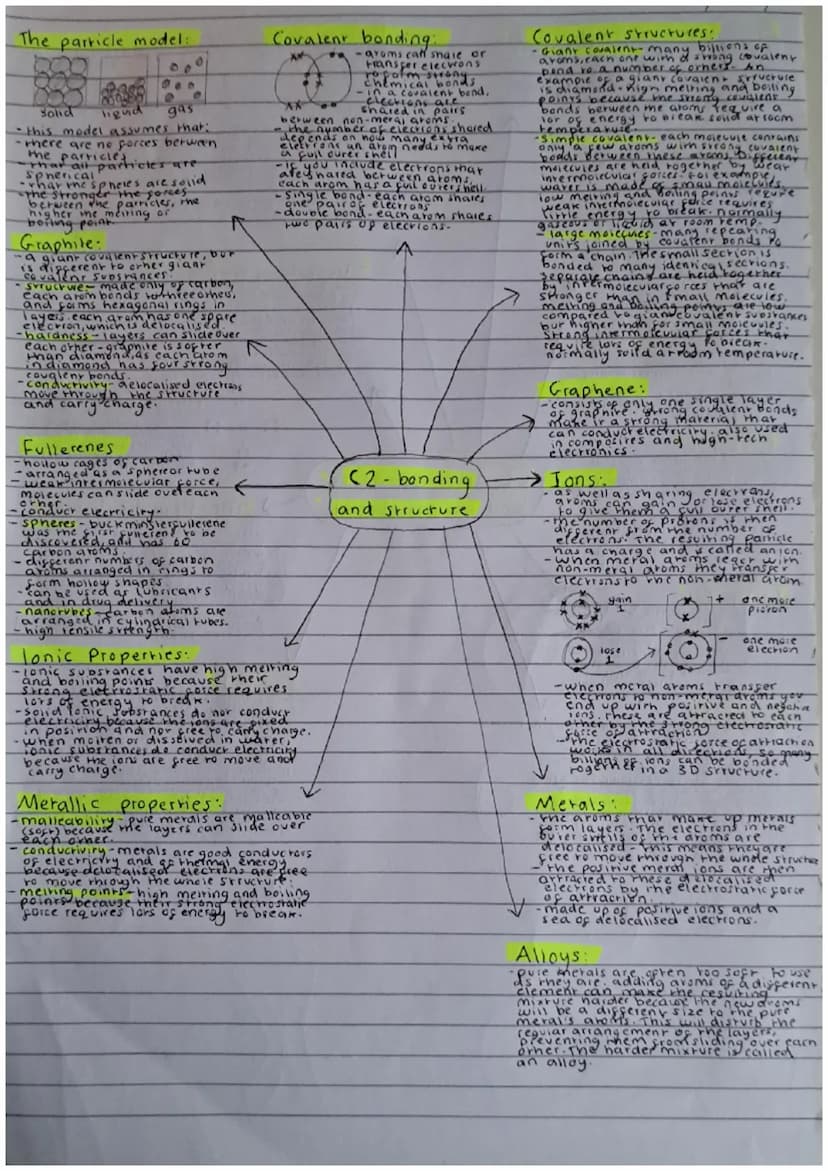 The particle model:
solid liquid gas
- this model assumes that:
- there are no forces between
the particles
- that all particles are
spherical
- that the spheres are solid
- the stronger the forces
between the particles, the
higher the melting or
boiling point.
Covalent bonding:
- atoms can share or
transfer electrons
to form strong
chemical bonds
- in a covalent bond,
electrons are
shared in pairs
between non-metal atoms.
- the number of electrons shared
depends on how many extra
electrons an atom needs to make
a full outer shell
- if you include electrons that
are shared between atoms,
each atom has a full outer shell
- single bond - each atom shares
one pair of electrons
- double bond - each atom shares
two pairs of electrons.
Covalent structures:
- Giant covalent - many billions of
atoms, each one with a strong covalent
bond to a number of others. An
example of a giant covalent structure
is diamond - high melting and boiling
points because the strong covalent
bonds between the atoms require a
lot of energy to break solid at room
temperature.
- Simple covalent - each molecule contains
only a few atoms with strong covalent
bonds between these atoms. Different
molecules are held together by weak
intermolecular forces. For example,
water is made of small molecules.
low melting and boiling points require
weak intermolecular force requires
little energy to break. normally
gaseous or liquid at room temp.
- large molecules - many repeating
units joined by covalent bonds to
form a chain. The small section is
bonded to many identical sections.
Separate chains are held together
by intermolecular forces that are
stronger than in small molecules.
melting and boiling points are low
compared to giant covalent substances
but higher than for small molecules.
Strong intermolecular forces that
require lots of energy to break.
normally solid at room temperature.
Graphite:
- a giant covalent structure, but
is different to other giant
covalent substances.
- structure - made only of carbon,
each atom bonds to three others,
and forms hexagonal rings in
layers. each atom has one spare
electron, which is delocalised.
- hardness - layers can slide over
each other - graphite is softer
than diamond, as each atom
in diamond has four strong
covalent bonds.
- conductivity - delocalised electrons
move through the structure
and carry charge.
Graphene:
- consists of only one single layer
of graphite. strong covalent bonds
make it a strong material that
can conduct electricity. also used
in composites and high-tech
electronics.
Fullerenes
- hollow cages of carbon
- arranged as a sphere or tube
- weak intermolecular force,
molecules can slide over each
other.
- conduct electricity.
- spheres - buckminsterfullerene
was the first fullerene to be
discovered, and has 60
carbon atoms.
- different numbers of carbon
atoms arranged in rings to
form hollow shapes
- can be used as lubricants
and in drug delivery
- nanotubes - carbon atoms are
arranged in cylindrical tubes.
- high tensile strength.
C2 - bonding
and structure
Ions:
- as well as sharing electrons,
atoms can gain or lose electrons
to give them a full outer shell.
- the number of protons is then
different from the number of
electrons. The resulting particle
has a charge and is called an ion.
- when metal atoms react with
non-metal atoms they transfer
electrons to the non-metal atom.
gain
1
+ one more
proton
lose
1
- one more
electron
- when metal atoms transfer
electrons to non-metal atoms you
end up with positive and negative
ions. These are attracted to each
other by the strong electrostatic
force of attraction.
- the electrostatic force of attraction
works in all directions, so many
billions of ions can be bonded
together in a 3D structure.
Ionic Properties:
- Ionic substances have high melting
and boiling points because their
strong electrostatic force requires
lots of energy to break.
- solid Ionic substances do not conduct
electricity because the ions are fixed
in position and not free to carry charge.
- when molten or dissolved in water,
ionic substances do conduct electricity
because the ions are free to move and
carry charge.
Metallic properties:
- malleability - pure metals are malleable
(soft) because the layers can slide over
each other.
- conductivity - metals are good conductors
of electricity and of thermal energy
because delocalised electrons are free
to move through the whole structure.
- melting points - high melting and boiling
points because their strong electrostatic
force requires lots of energy to break.
Metals:
- the atoms that make up metals
form layers. The electrons in the
outer shells of the atoms are
delocalised - this means they are
free to move through the whole structure
- the positive metal ions are then
attracted to these delocalised
electrons by the electrostatic force
of attraction.
- made up of positive ions and a
sea of delocalised electrons.
Alloys:
- pure metals are often too soft to use
as they are. adding atoms of a different
element can make the resulting
mixture harder because the new atoms
will be a different size to the pure
metal's atoms. This will disturb the
regular arrangement of the layers,
preventing them from sliding over each
other. The harder mixture is called
an alloy.